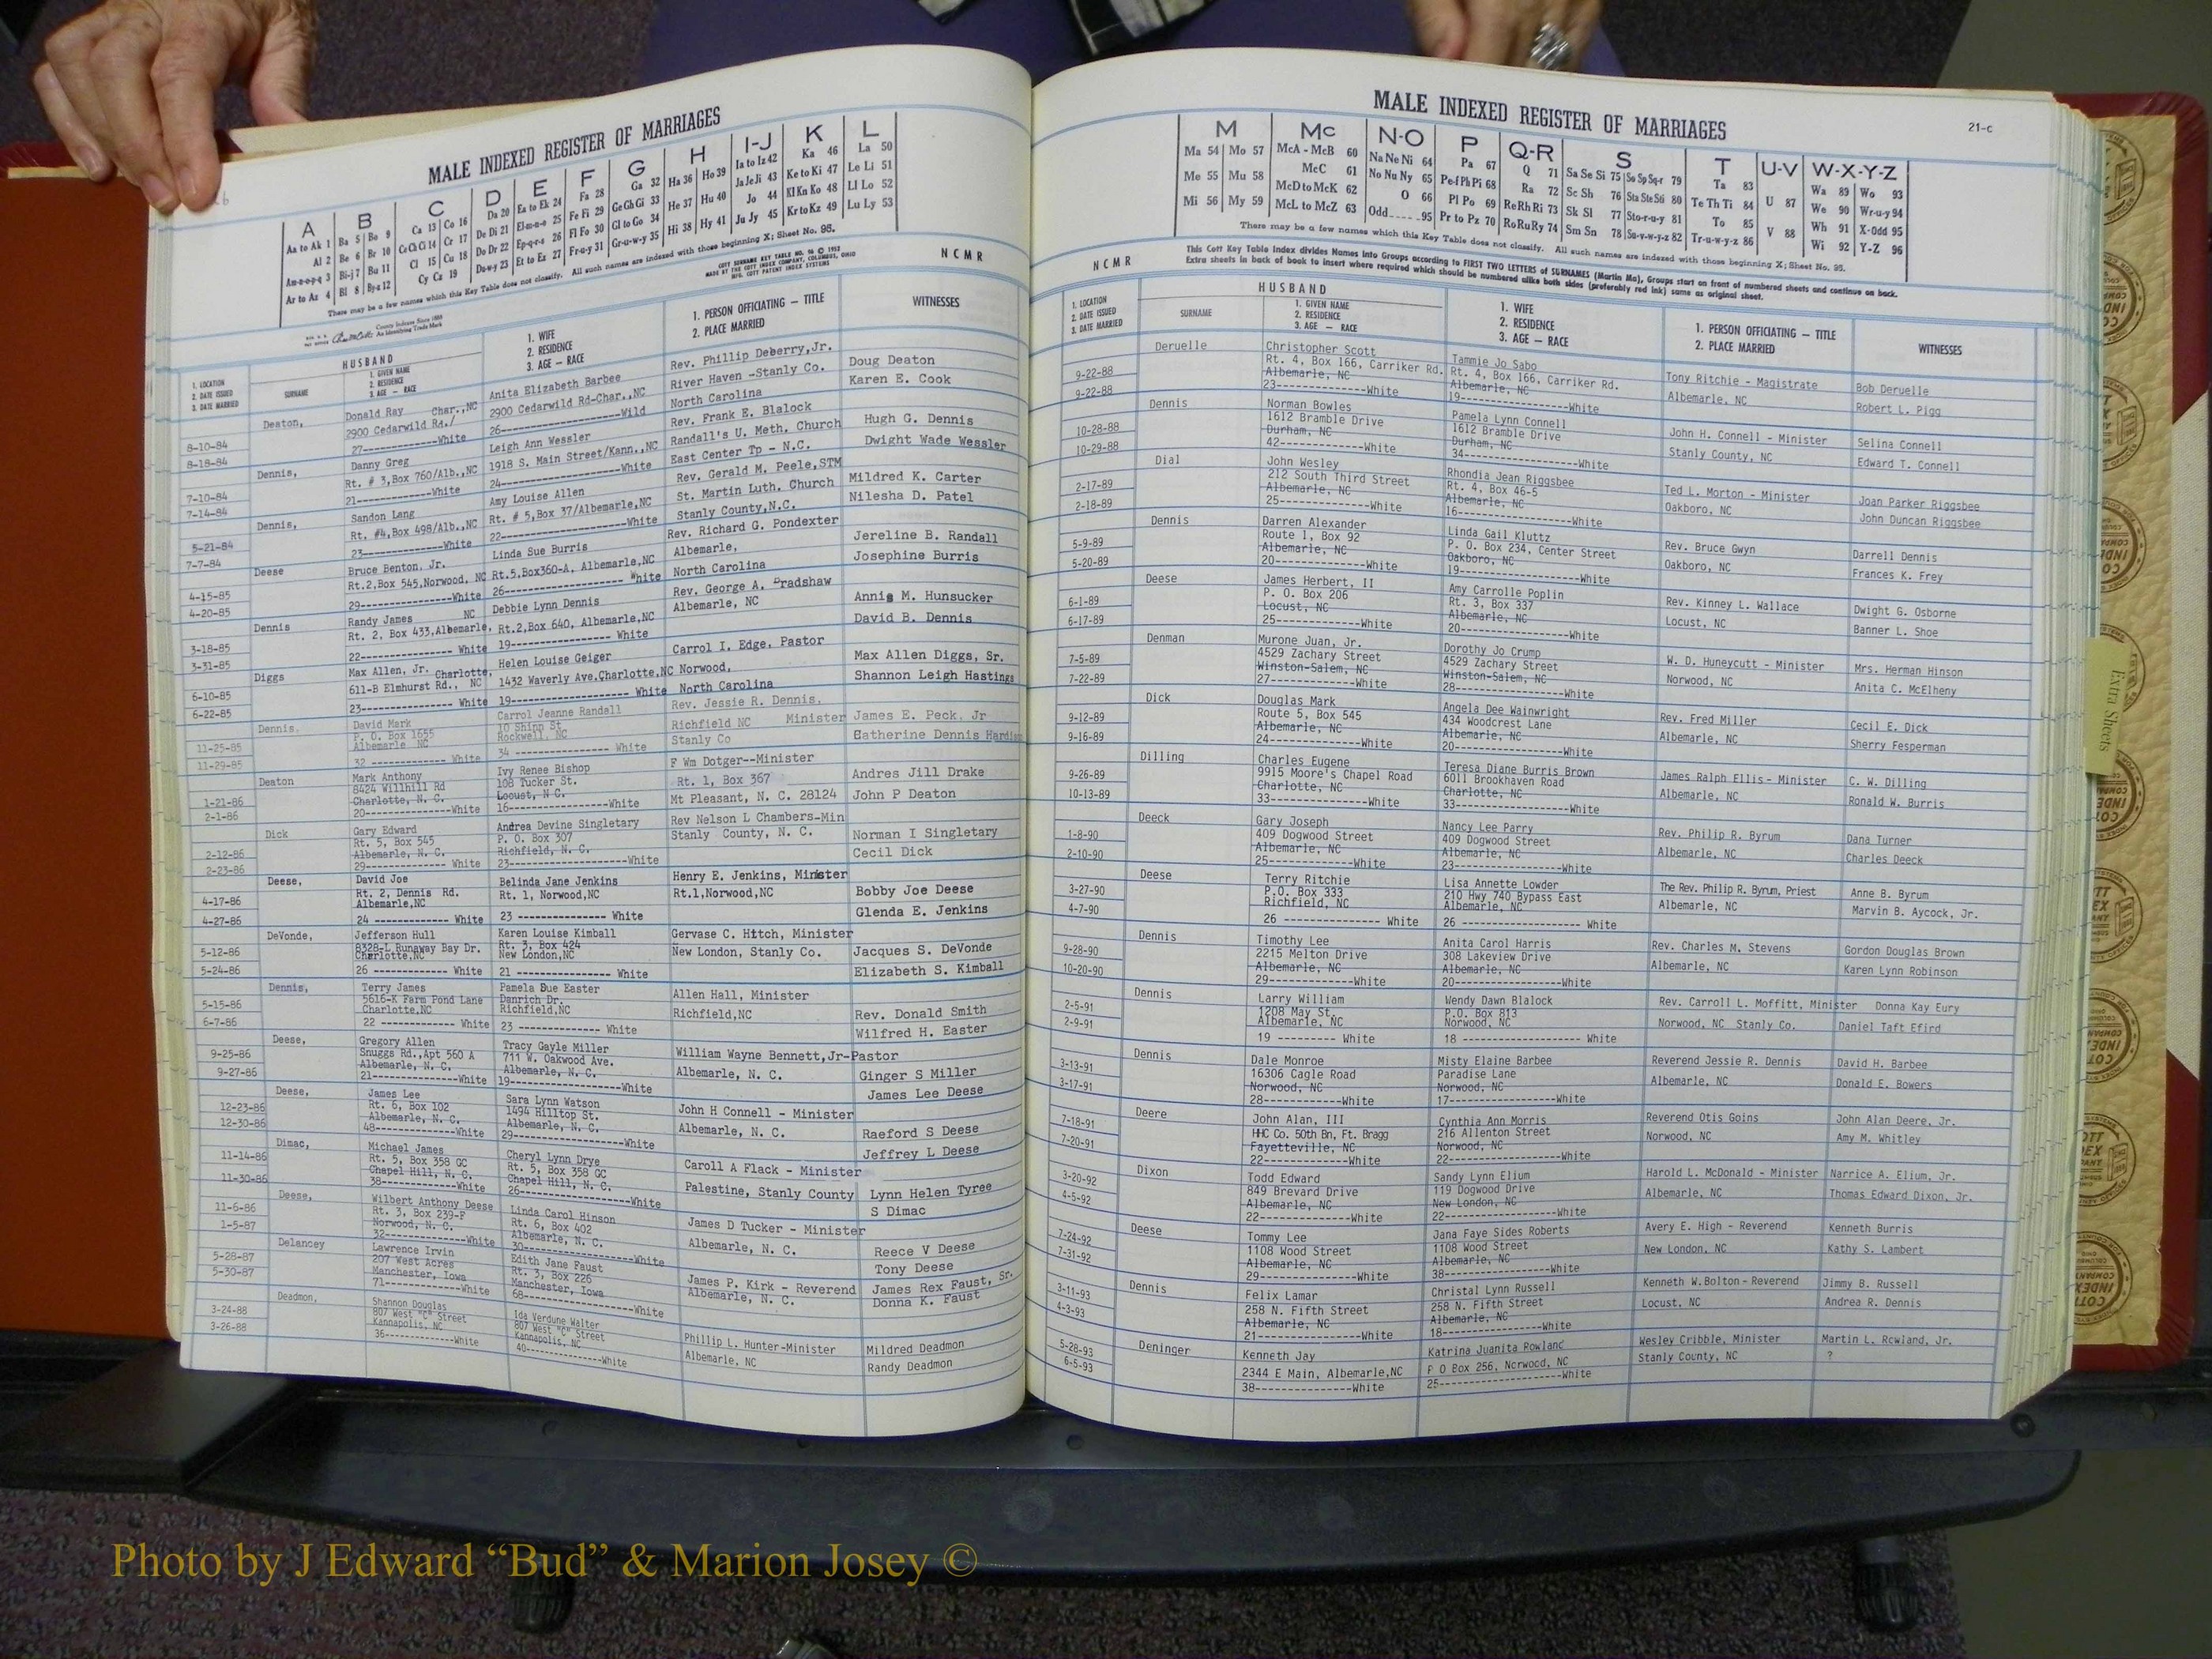 MALE INDEXED REGISTER OF MARRIAGES
A B C D E F G H I-J K L
Aa to Ak 1 Ba 5 Bo 9 Ca 13 Co 16 Da 20 Ea to Ek 24 Fa 28 Ga 32 Ha 36 Ho 39 Ia to Iz 42 Ka 46 La 50
Al 2 Be 6 Br 10 Ce Ch Ci 14 Cr 17 De Di 21 El-m-n-o 25 Fe Fi 29 Ge Gh Gi 33 He 37 Hu 40 Ja Je Ji 43 Ke to Ki 47 Le Li 51
Am-n-o-p-q 3 Bi-j 7 Bu 11 Cl 15 Cu 18 Do Dr 22 Ep-q-r-s 26 Fl Fo 30 Gl to Go 34 Hi 38 Hy 41 Jo 44 Kl Kn Ko 48 Ll Lo 52
Ar to Az 4 Bl 8 By-z 12 Cy Cz 19 Du-w-y 23 Et to Ez 27 Fr-u-y 31 Gr-u-w-y 35 Ju Jy 45 Kr to Kz 49 Lu Ly 53
There may be a few names which this Key Table does not classify. All such names are indexed with those beginning X; Sheet No. 95.
COTT SURNAME KEY TABLE NO. 96 © 1952
MADE BY THE COTT INDEX COMPANY, COLUMBUS, OHIO
MFG. COTT PATENT INDEX SYSTEMS
NCMR
County Indexes Since 1888
An Identifying Trade Mark
1. LOCATION
2. DATE ISSUED
3. DATE MARRIED
HUSBAND
SURNAME
1. GIVEN NAME
2. RESIDENCE
3. AGE — RACE
1. WIFE
2. RESIDENCE
3. AGE — RACE
1. PERSON OFFICIATING — TITLE
2. PLACE MARRIED
WITNESSES
Deaton, Donald Ray Char.,NC Anita Elizabeth Barbee Rev. Phillip Deberry,Jr. Doug Deaton
8-10-84 2900 Cedarwild Rd./ 2900 Cedarwild Rd-Char.,NC River Haven -Stanly Co. Karen E. Cook
8-18-84 27----------White 26-------------Wild North Carolina
Dennis, Danny Greg Leigh Ann Wessler Rev. Frank E. Blalock Hugh G. Dennis
7-10-84 Rt. # 3,Box 760/Alb.,NC 1918 S. Main Street/Kann.,NC Randall's U. Meth. Church Dwight Wade Wessler
7-14-84 21------------White 24-----------------White East Center Tp - N.C.
Dennis, Sandon Lang Amy Louise Allen Rev. Gerald M. Peele,STM Mildred K. Carter
5-21-84 Rt. #4,Box 498/Alb.,NC Rt. # 5,Box 37/Albemarle,NC St. Martin Luth. Church Nilesha D. Patel
7-7-84 23-------------White 22-----------------White Stanly County,N.C.
Deese Bruce Benton, Jr. Linda Sue Burris Rev. Richard G. Pondexter Jereline B. Randall
4-15-85 Rt.2,Box 545,Norwood, NC Rt.5,Box360-A, Albemarle,NC Albemarle, Josephine Burris
4-20-85 29---------------White 26------------------ White North Carolina
Dennis Randy James NC Debbie Lynn Dennis Rev. George A. Bradshaw Annie M. Hunsucker
3-18-85 Rt. 2, Box 433,Albemarle, Rt.2,Box 640, Albemarle,NC Albemarle, NC David B. Dennis
3-31-85 22---------------- White 19------------------ White
Diggs Max Allen, Jr. Charlotte, Helen Louise Geiger Carrol I. Edge, Pastor Max Allen Diggs, Sr.
6-10-85 611-B Elmhurst Rd., NC 1432 Waverly Ave,Charlotte,NC Norwood, Shannon Leigh Hastings
6-22-85 23---------------- White 19------------------- White North Carolina
Dennis. David Mark Carrol Jeanne Randall Rev. Jessie R. Dennis, James E. Peck, Jr
11-25-85 P. O. Box 1655 10 Shinn St Richfield NC Minister Catherine Dennis Hardison
11-29-85 Albemarle NC Rockwell, NC Stanly Co
32 ------------- White 34 --------------- White
Deaton Mark Anthony Ivy Renee Bishop F Wm Dotger--Minister Andres Jill Drake
1-21-86 8424 Willhill Rd 108 Tucker St. Rt. 1, Box 367 John P Deaton
2-1-86 Charlotte, N. C. Locust, N C. Mt Pleasant, N. C. 28124
20---------------White 16-----------------White
Dick Gary Edward Andrea Devine Singletary Rev Nelson L Chambers-Min Norman I Singletary
2-12-86 Rt. 5, Box 545 P. O. Box 307 Stanly County, N. C. Cecil Dick
2-23-86 Albemarle, N. C. Richfield, N. C.
29-------------- White 23------------------White
Deese, David Joe Belinda Jane Jenkins Henry E. Jenkins, Minister Bobby Joe Deese
4-17-86 Rt. 2, Dennis Rd. Rt. 1, Norwood,NC Rt.1,Norwood,NC Glenda E. Jenkins
4-27-86 Albemarle,NC
24 ------------- White 23 --------------- White
DeVonde, Jefferson Hull Karen Louise Kimball Gervase C. Hitch, Minister Jacques S. DeVonde
5-12-86 8328-L Runaway Bay Dr. Rt. 3, Box 424 New London, Stanly Co. Elizabeth S. Kimball
5-24-86 Charlotte,NC New London,NC
26 ------------- White 21 --------------- White
Dennis, Terry James Pamela Sue Easter Allen Hall, Minister Rev. Donald Smith
5-15-86 5616-K Farm Pond Lane Danrich Dr. Richfield,NC Wilfred H. Easter
6-7-86 Charlotte,NC Richfield,NC
22 ------------ White 23 -------------- White
Deese, Gregory Allen Tracy Gayle Miller William Wayne Bennett,Jr-Pastor Ginger S Miller
9-25-86 Snuggs Rd.,Apt 560 A 711 W. Oakwood Ave. Albemarle, N. C. James Lee Deese
9-27-86 Albemarle, N. C. Albemarle, N. C.
21---------------White 19------------------White
Deese, James Lee Sara Lynn Watson John H Connell - Minister Raeford S Deese
12-23-86 Rt. 6, Box 102 1494 Hilltop St. Albemarle, N. C. Jeffrey L Deese
12-30-86 Albemarle, N. C. Albemarle, N. C.
48---------------White 29------------------White
Dimac, Michael James Cheryl Lynn Drye Caroll A Flack - Minister Lynn Helen Tyree
11-14-86 Rt. 5, Box 358 GC Rt. 5, Box 358 GC Palestine, Stanly County S Dimac
11-30-86 Chapel Hill, N. C. Chapel Hill, N. C.
38---------------White 26------------------White
Deese, Wilbert Anthony Deese Linda Carol Hinson James D Tucker - Minister Reece V Deese
11-6-86 Rt. 3, Box 239-F Rt. 6, Box 402 Albemarle, N. C. Tony Deese
1-5-87 Norwood, N. C. Albemarle, N. C.
32---------------White 30------------------White
Delancey Lawrence Irvin Edith Jane Faust James P. Kirk - Reverend James Rex Faust, Sr.
5-28-87 207 West Acres Rt. 3, Box 226 Albemarle, N. C. Donna K. Faust
5-30-87 Manchester, Iowa Manchester, Iowa
71---------------White 68------------------White
Deadmon, Shannon Douglas Ida Verdune Walter Phillip L. Hunter-Minister Mildred Deadmon
3-24-88 807 West "C" Street 807 West "C" Street Albemarle, NC Randy Deadmon
3-26-88 Kannapolis, NC Kannapolis, NC
36-------------White 40--------------White
MALE INDEXED REGISTER OF MARRIAGES
21-c
M Mc N-O P Q-R S T U-V W-X-Y-Z
Ma 54 Mo 57 McA - McB 60 Na Ne Ni 64 Pa 67 Q 71 Sa Se Si 75 So Sp Sq-r 79 Ta 83 U 87 Wa 89 Wo 93
Me 55 Mu 58 McC 61 No Nu Ny 65 Pe-f Ph Pi 68 Ra 72 Sc Sh 76 Sta Ste Sti 80 Te Th Ti 84 V 88 We 90 Wr-u-y 94
Mi 56 My 59 McD to McK 62 O 66 Pl Po 69 Re Rh Ri 73 Sk Sl 77 Sto-r-u-y 81 To 85 Wh 91 X-Odd 95
McL to McZ 63 Odd ----- 95 Pr to Pz 70 Ro Ru Ry 74 Sm Sn 78 Su-v-w-y-z 82 Tr-u-w-y-z 86 Wi 92 Y-Z 96
There may be a few names which this Key Table does not classify. All such names are indexed with those beginning X; Sheet No. 95.
This Cott Key Table Index divides Names into Groups according to FIRST TWO LETTERS of SURNAMES (Martin Ma), Groups start on front of numbered sheets and continue on back.
Extra sheets in back of book to insert where required which should be numbered alike both sides (preferably red ink) same as original sheet.
NCMR
1. LOCATION
2. DATE ISSUED
3. DATE MARRIED
HUSBAND
SURNAME
1. GIVEN NAME
2. RESIDENCE
3. AGE — RACE
1. WIFE
2. RESIDENCE
3. AGE — RACE
1. PERSON OFFICIATING — TITLE
2. PLACE MARRIED
WITNESSES
Deruelle Christopher Scott Tammie Jo Sabo Tony Ritchie - Magistrate Bob Deruelle
9-22-88 Rt. 4, Box 166, Carriker Rd. Rt. 4, Box 166, Carriker Rd. Albemarle, NC Robert L. Pigg
9-22-88 Albemarle, NC Albemarle, NC
23---------------White 19---------------White
Dennis Norman Bowles Pamela Lynn Connell John H. Connell - Minister Selina Connell
10-28-88 1612 Bramble Drive 1612 Bramble Drive Stanly County, NC Edward T. Connell
10-29-88 Durham, NC Durham, NC
42---------------White 34---------------White
Dial John Wesley Rhondia Jean Riggsbee Ted L. Morton - Minister Joan Parker Riggsbee
2-17-89 212 South Third Street Rt. 4, Box 46-5 Oakboro, NC John Duncan Riggsbee
2-18-89 Albemarle, NC Albemarle, NC
25---------------White 16---------------White
Dennis Darren Alexander Linda Gail Kluttz Rev. Bruce Gwyn Darrell Dennis
5-9-89 Route 1, Box 92 P. O. Box 234, Center Street Oakboro, NC Frances K. Frey
5-20-89 Albemarle, NC Oakboro, NC
20---------------White 19---------------White
Deese James Herbert, II Amy Carrolle Poplin Rev. Kinney L. Wallace Dwight G. Osborne
6-1-89 P. O. Box 206 Rt. 3, Box 337 Locust, NC Banner L. Shoe
6-17-89 Locust, NC Albemarle, NC
25---------------White 20---------------White
Denman Murone Juan, Jr. Dorothy Jo Crump W. D. Huneycutt - Minister Mrs. Herman Hinson
7-5-89 4529 Zachary Street 4529 Zachary Street Norwood, NC Anita C. McElheny
7-22-89 Winston-Salem, NC Winston-Salem, NC
27---------------White 28---------------White
Dick Douglas Mark Angela Dee Wainwright Rev. Fred Miller Cecil E. Dick
9-12-89 Route 5, Box 545 434 Woodcrest Lane Albemarle, NC Sherry Fesperman
9-16-89 Albemarle, NC Albemarle, NC
24---------------White 20---------------White
Dilling Charles Eugene Teresa Diane Burris Brown James Ralph Ellis- Minister C. W. Dilling
9-26-89 9915 Moore's Chapel Road 6011 Brookhaven Road Albemarle, NC Ronald W. Burris
10-13-89 Charlotte, NC Charlotte, NC
33---------------White 33---------------White
Deeck Gary Joseph Nancy Lee Parry Rev. Philip R. Byrum Dana Turner
1-8-90 409 Dogwood Street 409 Dogwood Street Albemarle, NC Charles Deeck
2-10-90 Albemarle, NC Albemarle, NC
25---------------White 23---------------White
Deese Terry Ritchie Lisa Annette Lowder The Rev. Philip R. Byrum, Priest Anne B. Byrum
3-27-90 P.O. Box 333 210 Hwy 740 Bypass East Albemarle, NC Marvin B. Aycock, Jr.
4-7-90 Richfield, NC Albemarle, NC
26 --------------- White 26 --------------- White
Dennis Timothy Lee Anita Carol Harris Rev. Charles M. Stevens Gordon Douglas Brown
9-28-90 2215 Melton Drive 308 Lakeview Drive Albemarle, NC Karen Lynn Robinson
10-20-90 Albemarle, NC Albemarle, NC
29---------------White 20---------------White
Dennis Larry William Wendy Dawn Blalock Rev. Carroll L. Moffitt, Minister Donna Kay Eury
2-5-91 1208 May St. P.O. Box 813 Norwood, NC Stanly Co. Daniel Taft Efird
2-9-91 Albemarle, NC Norwood, NC
19 --------- White 18 --------------- White
Dennis Dale Monroe Misty Elaine Barbee Reverend Jessie R. Dennis David H. Barbee
3-13-91 16306 Cagle Road Paradise Lane Albemarle, NC Donald E. Bowers
3-17-91 Norwood, NC Norwood, NC
28---------------White 17---------------White
Deere John Alan, III Cynthia Ann Morris Reverend Otis Goins John Alan Deere, Jr.
7-18-91 HHC Co. 50th Bn, Ft. Bragg 216 Allenton Street Norwood, NC Amy M. Whitley
7-20-91 Fayetteville, NC Norwood, NC
22---------------White 22---------------White
Dixon Todd Edward Sandy Lynn Elium Harold L. McDonald - Minister Narrice A. Elium, Jr.
3-20-92 849 Brevard Drive 119 Dogwood Drive Albemarle, NC Thomas Edward Dixon, Jr.
4-5-92 Albemarle, NC New London, NC
22---------------White 22---------------White
Deese Tommy Lee Jana Faye Sides Roberts Avery E. High - Reverend Kenneth Burris
7-24-92 1108 Wood Street 1108 Wood Street New London, NC Kathy S. Lambert
7-31-92 Albemarle, NC Albemarle, NC
29---------------White 38---------------White
Dennis Felix Lamar Christal Lynn Russell Kenneth W.Bolton - Reverend Jimmy B. Russell
3-11-93 258 N. Fifth Street 258 N. Fifth Street Locust, NC Andrea R. Dennis
4-3-93 Albemarle, NC Albemarle, NC
21---------------White 18---------------White
Deninger Kenneth Jay Katrina Juanita Rowland Wesley Cribble, Minister Martin L. Rowland, Jr.
5-28-93 2344 E Main, Albemarle,NC P O Box 256, Norwood, NC Stanly County, NC ?
6-5-93 38---------------White 25---------------White
Extra Sheets
Photo by J Edward “Bud” & Marion Josey ©